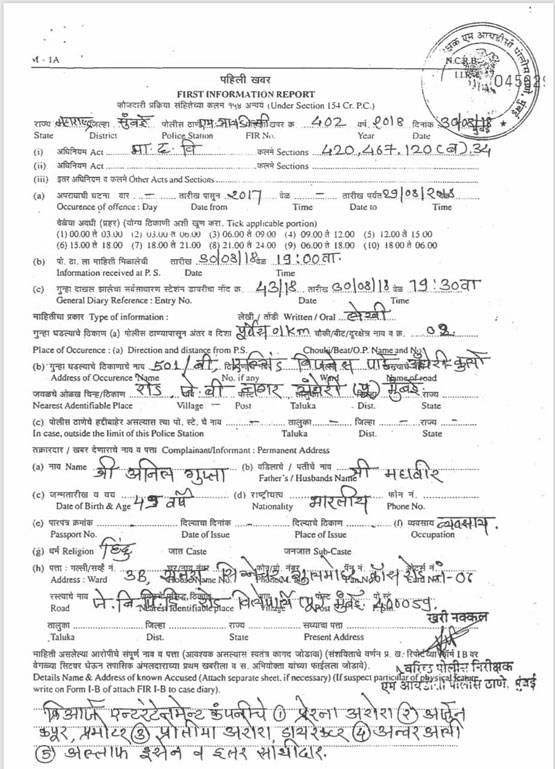 M - 1A
N.C.R.B.
पहिली खबर
FIRST INFORMATION REPORT
फौजदारी प्रक्रिया संहितेच्या कलम १५४ अन्वये (Under Section 154 Cr. P.C.)
राज्य महाराष्ट्र जिल्हा मुंबई पोलीस ठाणे एम आय डी सी खबर क्र. 402 वर्ष 2018 दिनांक 30/08/18
State District Police Station FIR No. Year Date
(i) अधिनियम Act भा.द.वि कलमे Sections 420,467,120(ब),34
(ii) अधिनियम Act कलमे Sections
(iii) इतर अधिनियम व कलमे Other Acts and Sections
(a) अपराधाची घटना वार - तारीख पासून 2017 वेळ - तारीख पर्यंत 29/08/2018
Occurence of offence : Day Date from Time Date to Time
वेळेचा अवधी (प्रहर) (योग्य ठिकाणी अशी खूण करा. Tick applicable portion)
(1) 00.00 ते 03.00 (2) 03.00 ते 06.00 (3) 06.00 ते 09.00 (4) 09.00 ते 12.00 (5) 12.00 ते 15.00
(6) 15.00 ते 18.00 (7) 18.00 ते 21.00 (8) 21.00 ते 24.00 (9) 06.00 ते 18.00 (10) 18.00 ते 06.00
(b) पो. ठा. ला माहिती मिळालेची तारीख 30/08/18 वेळ 19:00 वा.
Information received at P. S. Date Time
(c) गुन्हा दाखल झालेचा सर्वसाधारण स्टेशन डायरीचा नोंद क्र. 43/18 तारीख 30/08/18 वेळ 19:30 वा
General Diary Reference : Entry No. Date Time
माहितीचा प्रकार Type of information : लेखी / तोंडी Written / Oral लेखी
गुन्हा घडल्याचे ठिकाण (a) पोलीस ठाण्यापासून अंतर व दिशा पूर्वेस 01km चौकी/बीट/दुरक्षेत्र नाव व क्र. 02
Place of Occurence : (a) Direction and distance from P.S. Chouki/Beat/O.P. Name and No.
(b) गुन्हा घडल्याचे ठिकाणाचे नाव 501/बी, अंधेरी कुर्ला
Address of Occurence Name No. if any Ward Name of road
जवळचे ओळख चिन्ह/ठिकाण रोड जे.बी नगर अंधेरी (पू) मुंबई
Nearest Adentifiable Place Village - Post Taluka Dist. State
(c) पोलीस ठाणेचे हद्दीबाहेर असल्यास त्या पो. स्टे. चे नाव - तालुका - जिल्हा - राज्य -
In case, outside the limit of this Police Station Taluka Dist. State
तक्रारदार / खबर देणाराचे नाव व पत्ता Complainant/Informant : Permanent Address
(a) नाव Name श्री अनिल गुप्ता (b) वडिलांचे / पतीचे नाव श्री महावीर
Father's / Husbands Name
(c) जन्मतारीख व वय 49 वर्षे (d) राष्ट्रीयत्व भारतीय फोन नं.
Date of Birth & Age Nationality Phone No.
(e) पारपत्र क्रमांक दिल्याचा दिनांक दिल्याचे ठिकाण (f) व्यवसाय व्यवसाय
Passport No. Date of Issue Place of Issue Occupation
(g) धर्म Religion हिंदू जात Caste जनजात Sub-Caste
(h) पत्ता : गल्ली/सर्व्हे नं. 3B, रोड नं-06
Address : Ward
रस्त्याचे नाव जे.वि.पी.डी. विलेपार्ले मुंबई 400059
Road Nearest Identifiable place
तालुका - जिल्हा - राज्य - सध्याचा पत्ता
Taluka Dist. State Present Address
खरी नक्कल
माहिती असलेल्या आरोपींचे संपूर्ण नाव व पत्ता (आवश्यक असल्यास स्वतंत्र कागद जोडावा)
वरिष्ठ पोलीस निरीक्षक
Details Name & Address of known Accused (Attach separate sheet, if necessary) (If suspect particular of physical feature
एम आयडीसी पोलीस ठाणे, मुंबई
write on Form I-B of attach FIR I-B to case diary).
क्रिआर्ज एन्टरटेनमेन्ट कंपनीचे (1) प्रेरना अरोरा (2) अर्जुन
कपूर, प्रमोटर (3) प्रोतीमा अरोरा, डायरेक्टर (4) अन्वर अली
(5) अल्ताफ हुसेन व इतर साथीदार.